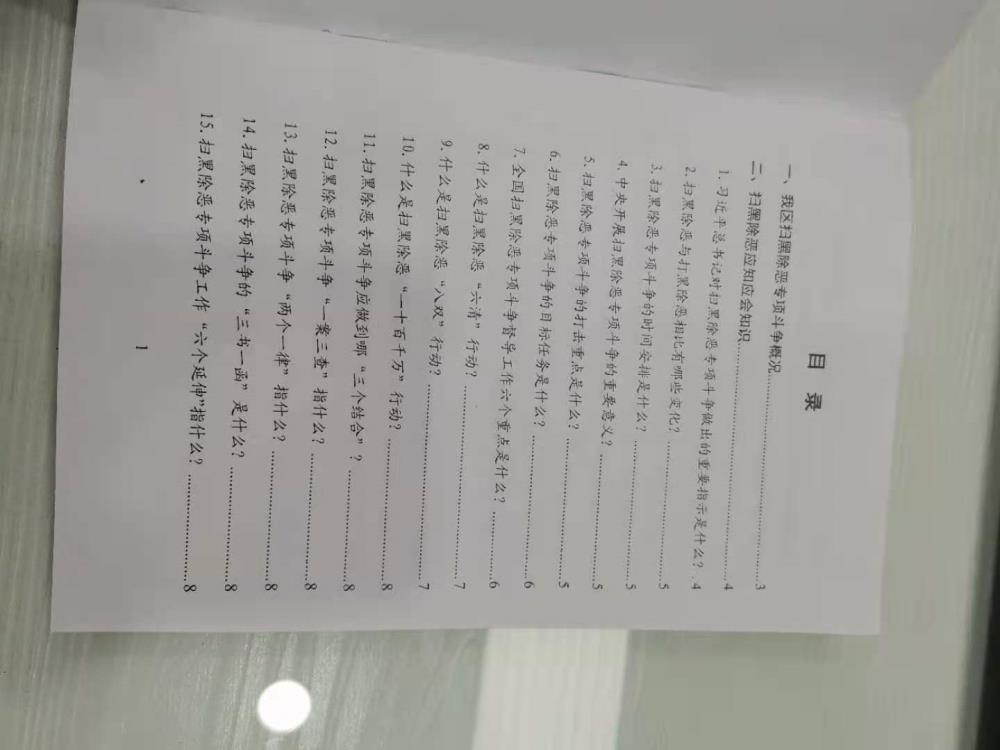 目 录
一、我区扫黑除恶专项斗争概况……………………………3
二、扫黑除恶应知应会知识……………………………4
1.习近平总书记对扫黑除恶专项斗争做出的重要指示是什么？.4
2.扫黑除恶与打黑除恶相比有哪些变化？……………………5
3.扫黑除恶专项斗争的时间安排是什么？……………………5
4.中央开展扫黑除恶专项斗争的重要意义？……………………5
5.扫黑除恶专项斗争的打击重点是什么？……………………5
6.扫黑除恶专项斗争的目标任务是什么？……………………6
7.全国扫黑除恶专项斗争督导工作六个重点是什么？…………6
8.什么是扫黑除恶“六清”行动？……………………………7
9.什么是扫黑除恶“八双”行动？……………………………7
10.什么是扫黑除恶“一十百千万”行动？……………………8
11.扫黑除恶专项斗争应做到哪“三个结合”？………………8
12.扫黑除恶专项斗争“一案三查”指什么？…………………8
13.扫黑除恶专项斗争“两个一律”指什么？…………………8
14.扫黑除恶专项斗争的“三书一函”是什么？………………8
15.扫黑除恶专项斗争工作“六个延伸”指什么？……………8
1